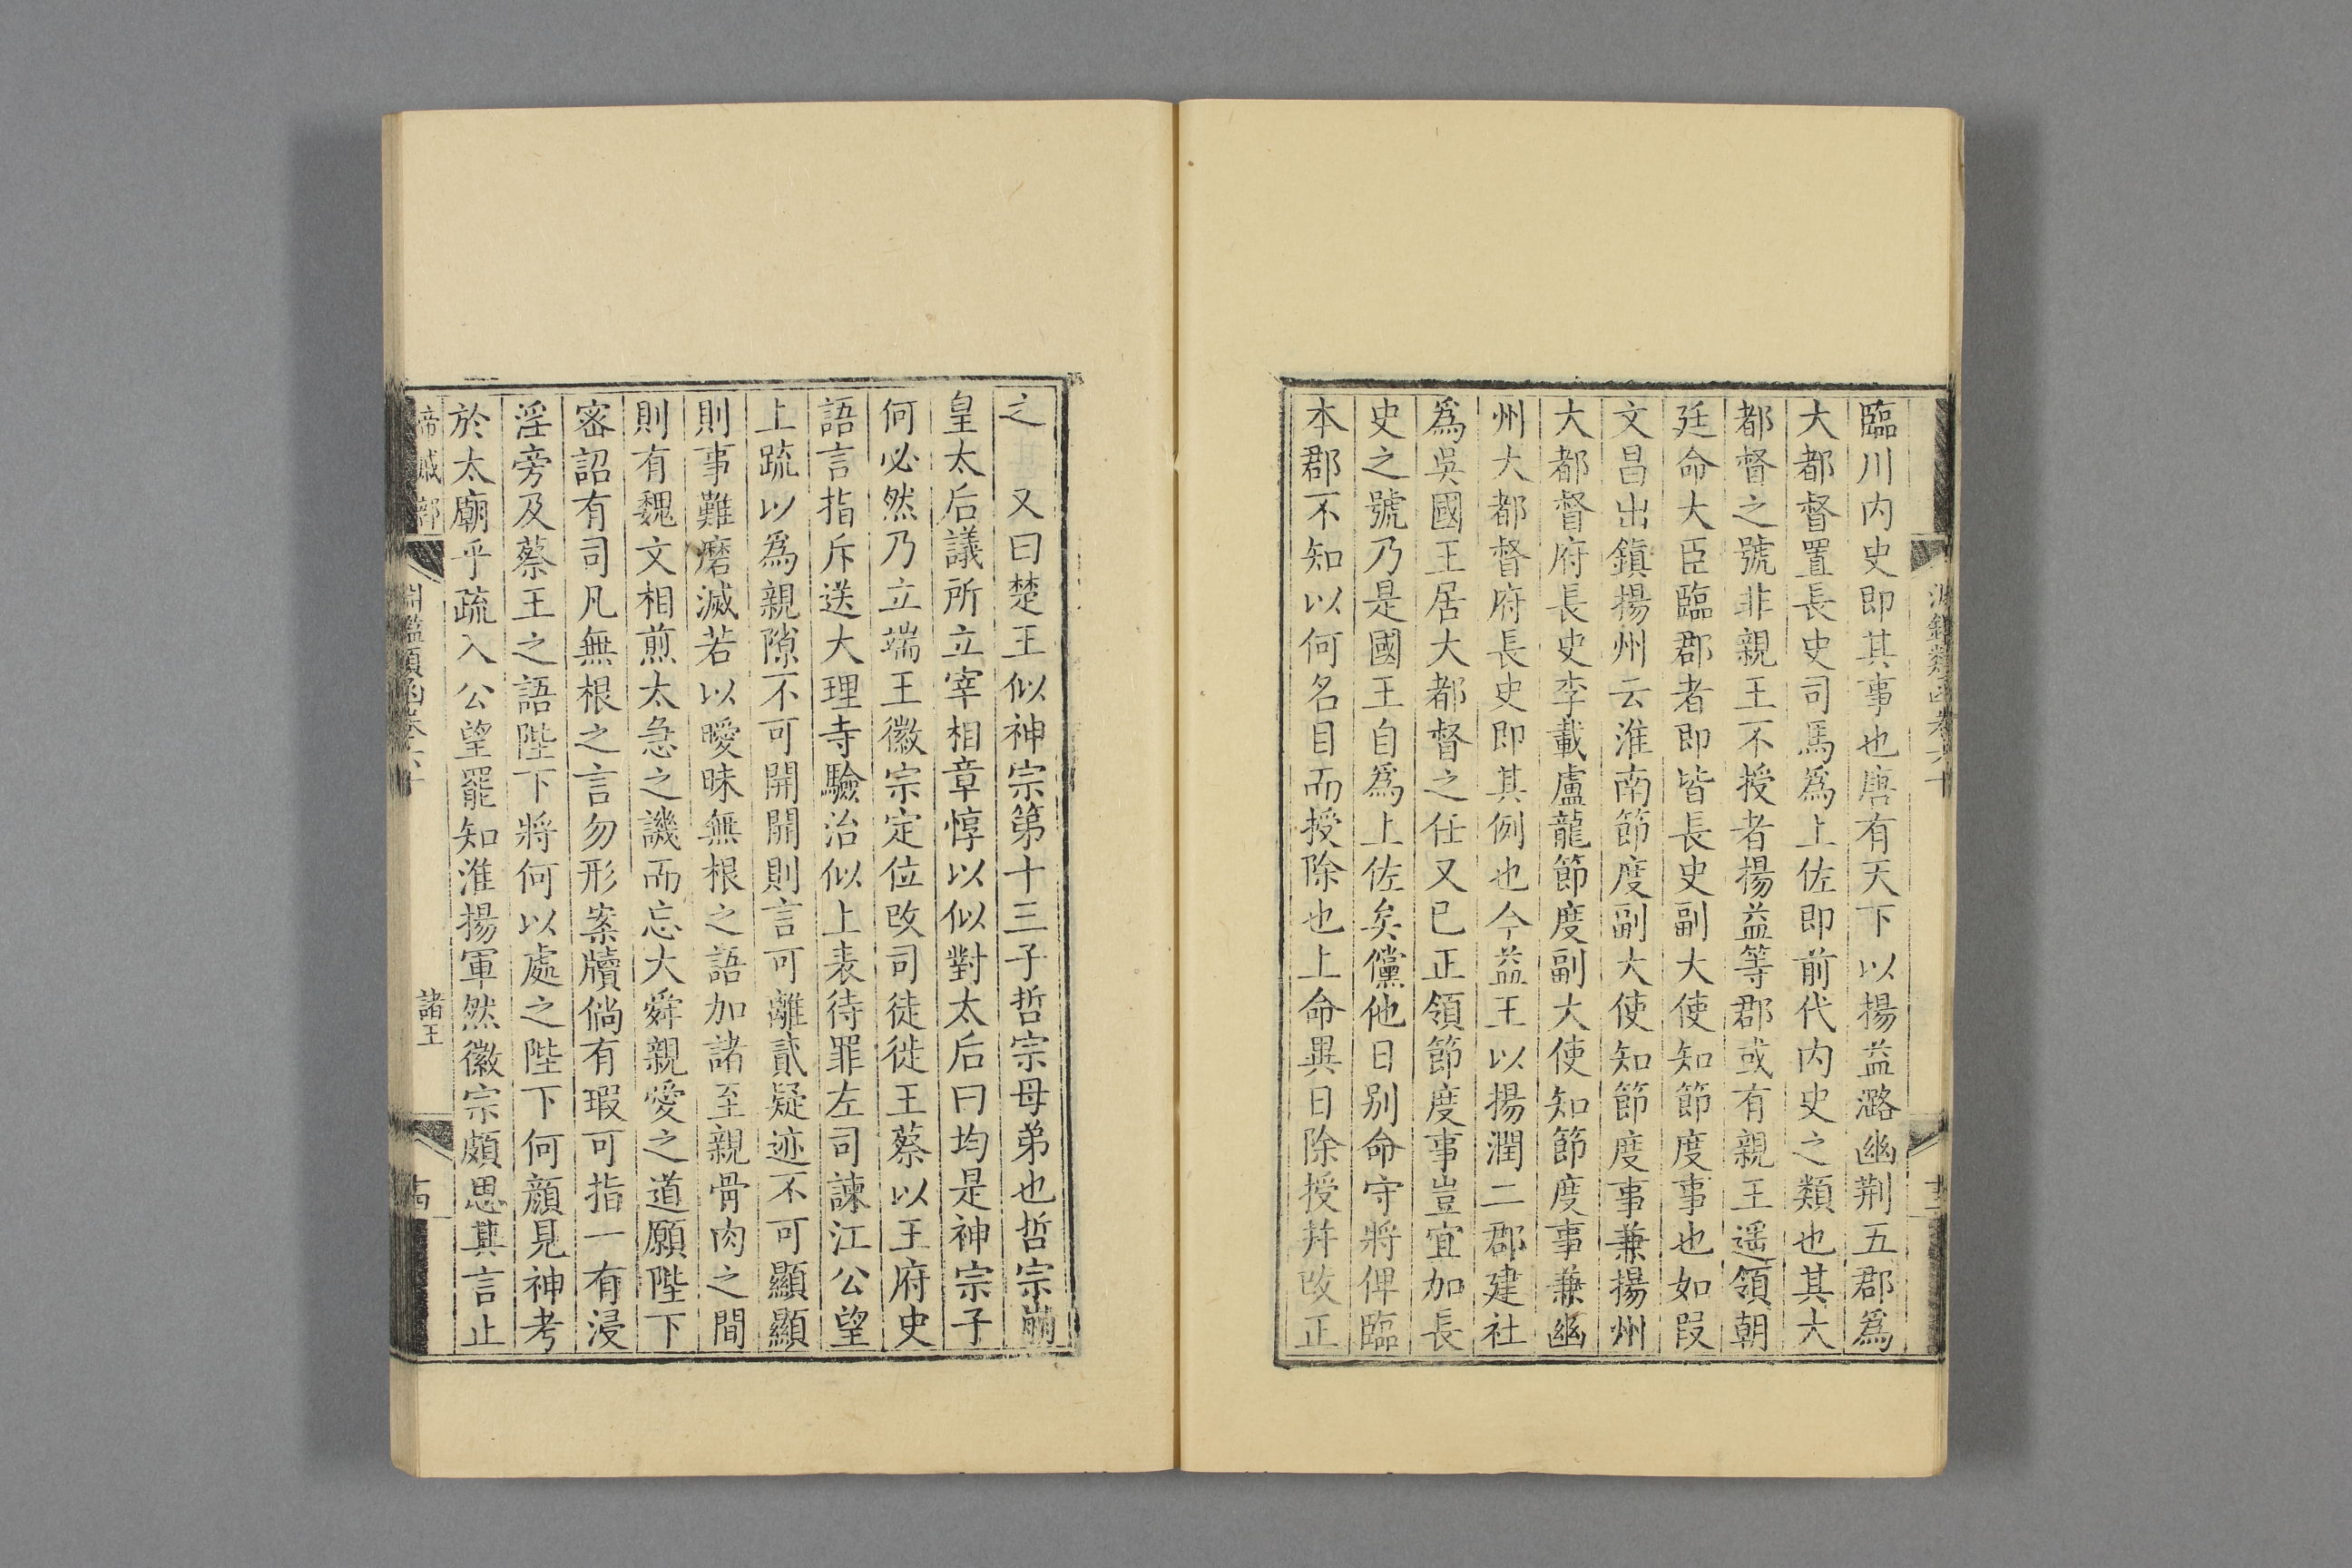 臨川内史即其事也唐有天下以揚益潞幽荆五郡爲
大都督置長史司馬爲上佐即前代内史之類也其大
都督之號非親王不授者揚益等郡或有親王遥領朝
廷命大臣臨郡者即皆長史副大使知節度事也如叚
文昌出鎮揚州云淮南節度副大使知節度事兼揚州
大都督府長史李載盧龍節度副大使知節度事兼幽
州大都督府長史即其例也今益王以揚潤二郡建社
爲吳國王居大都督之任又已正領節度事豈宜加長
史之號乃是國王自爲上佐矣儻他日别命守將俾臨
本郡不知以何名目而授除也上命異日除授幷改正
之　又曰楚王似神宗第十三子哲宗母弟也哲宗崩
皇太后議所立宰相章惇以似對太后曰均是神宗子
何必然乃立端王徽宗定位改司徒徙王蔡以王府史
語言指斥送大理寺驗治似上表待罪左司諫江公望
上疏以爲親隙不可開開則言可離貳疑迹不可顯顯
則事難磨滅若以曖昧無根之語加諸至親骨肉之間
則有魏文相煎太急之譏而忘大舜親愛之道願陛下
宻詔有司凡無根之言勿形案牘倘有瑕可指一有浸
淫旁及蔡王之語陛下將何以處之陛下何顔見神考
於太廟乎疏入公望罷知淮揚軍然徽宗頗思其言止
帝戚部
淵鑑類函卷六十
諸王